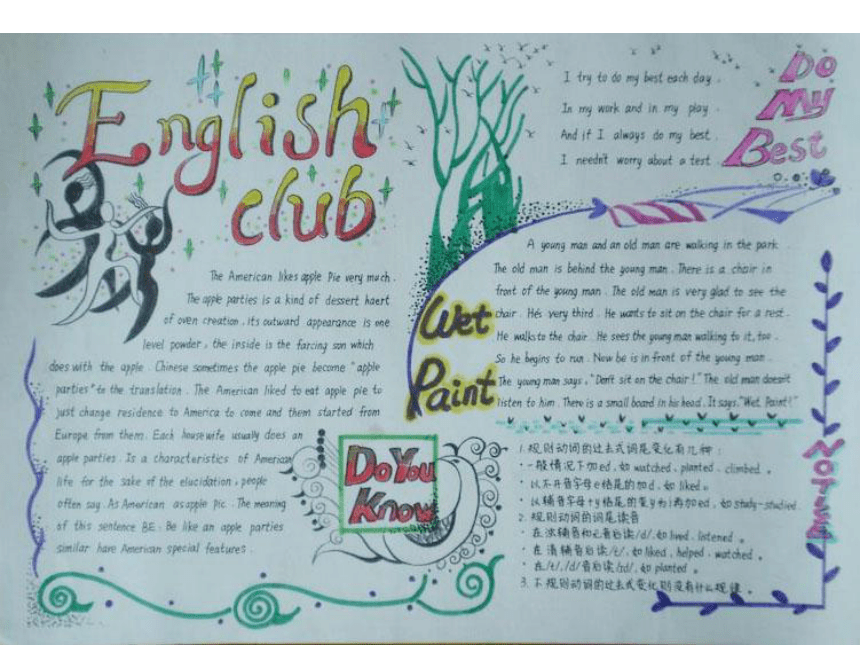 English
club
The American likes apple Pie very much.
The apple parties is a kind of dessert haert
of oven creation, its outward appearance is one
level powder, the inside is the farcing son which
does with the apple. Chinese sometimes the apple pie become "apple
parties" to the translation. The American liked to eat apple pie to
just change residence to America to come and them started from
Europe from them. Each housewife usually does an
apple parties. Is a characteristics of American
life for the sake of the elucidation, people
often say. As American as apple pic. The meaning
of this sentence BE: Be like an apple parties
similar have American special features.
Do You
Know
I try to do my best each day.
In my work and in my play.
And if I always do my best.
I needn't worry about a test.
Do
My
Best
Wet
Paint
A young man and an old man are walking in the park.
The old man is behind the young man. There is a chair in
front of the young man. The old man is very glad to see the
chair. He's very third. He wants to sit on the chair for a rest.
He walks to the chair. He sees the young man walking to it, too.
So he begins to run. Now be is in front of the young man.
The young man says, "Don't sit on the chair!" The old man doesn't
listen to him. There is a small board in his head. It says, "Wet Paint!"
1. 规则动词的过去式词尾变化有几种:
·一般情况下加ed,如watched, planted, climbed。
·以不发音字母e结尾的加d,如liked。
·以辅音字母+y结尾的变y为i再加ed,如study-studied
2. 规则动词的词尾读音
·在浊辅音和元音后读/d/,如lived, listened。
·在清辅音后读/t/,如liked, helped, watched。
·在/t/,/d/音后读/ɪd/,如planted。
3. 不规则动词的过去式变化则没有什么规律。